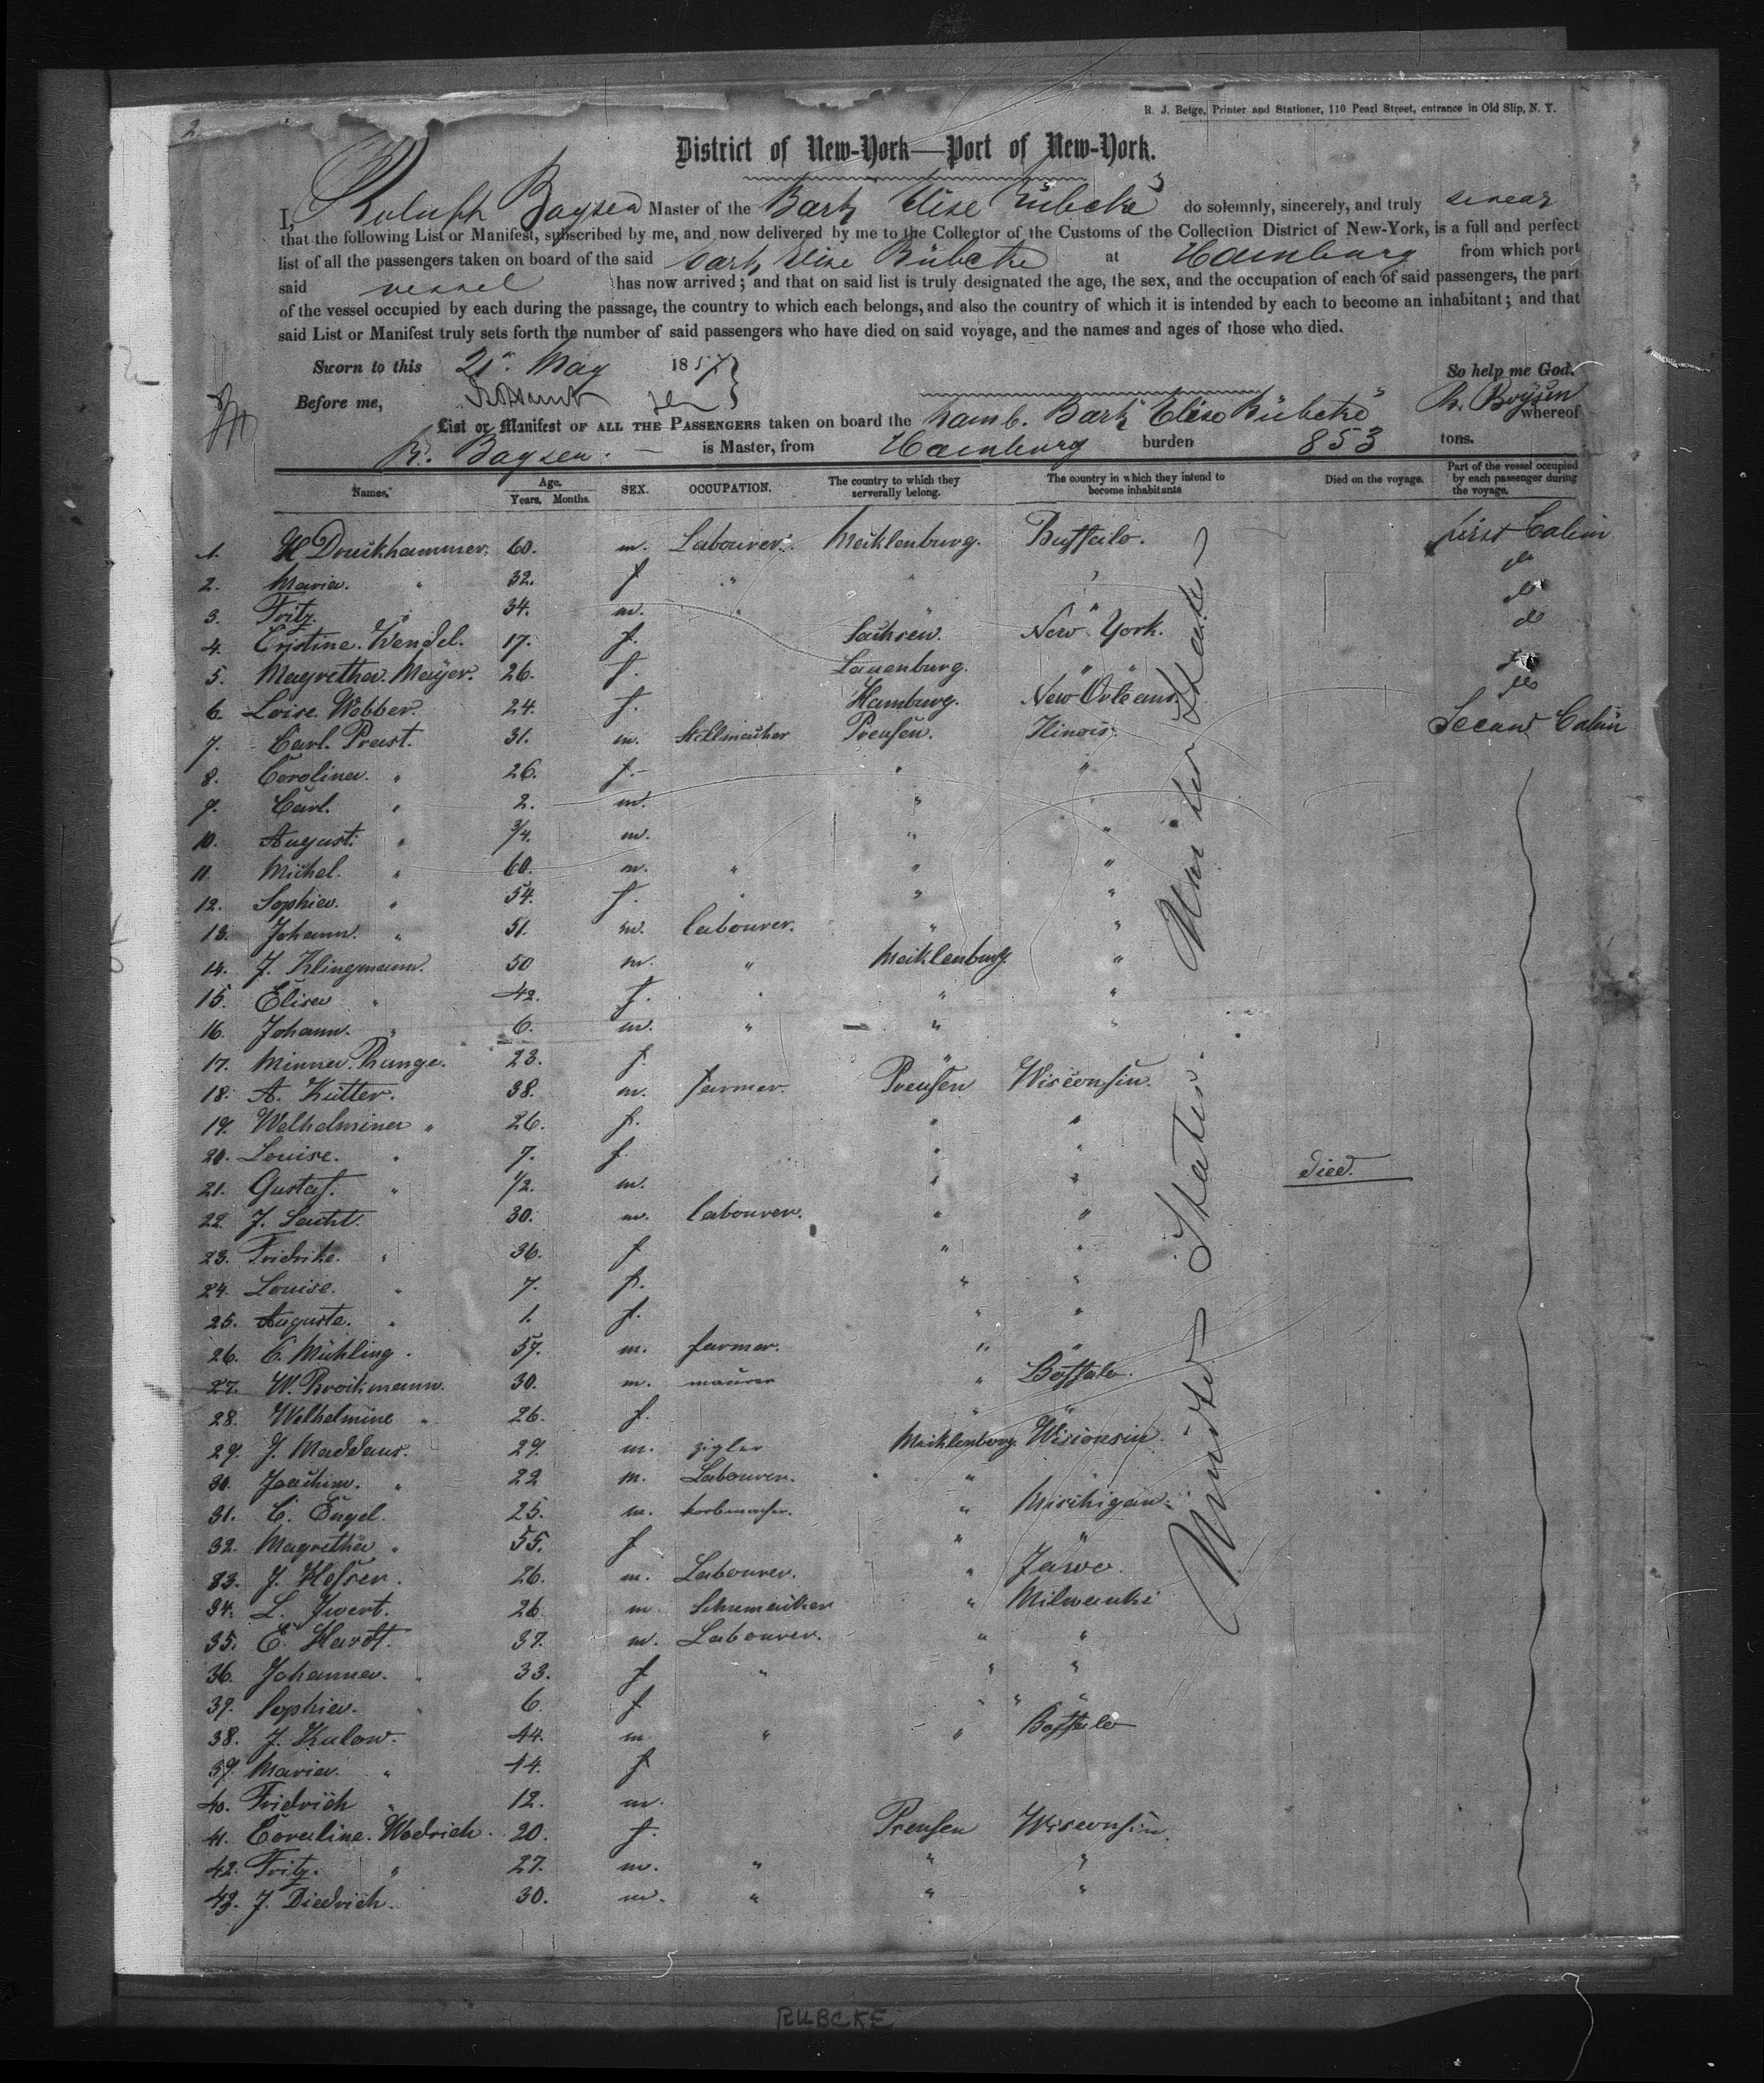 2.
R. J. Betge, Printer and Stationer, 110 Pearl Street, entrance in Old Slip, N. Y.
District of New-York—Port of New-York.
I, Boysen Master of the Bark Elise Rübcke do solemnly, sincerely, and truly swear
that the following List or Manifest, subscribed by me, and now delivered by me to the Collector of the Customs of the Collection District of New-York, is a full and perfect
list of all the passengers taken on board of the said bark Elise Rübcke at Hamburg from which port
said vessel has now arrived; and that on said list is truly designated the age, the sex, and the occupation of each of said passengers, the part
of the vessel occupied by each during the passage, the country to which each belongs, and also the country of which it is intended by each to become an inhabitant; and that
said List or Manifest truly sets forth the number of said passengers who have died on said voyage, and the names and ages of those who died.
Sworn to this 21st May 1857 So help me God.
Before me, R. Boysen
List or Manifest OF ALL THE PASSENGERS taken on board the hamb. Bark Elise Rübcke whereof
R. Boysen is Master, from Hamburg burden 853 tons.
Names. Age. Years. Months. SEX. OCCUPATION. The country to which they serverally belong. The country in which they intend to become inhabitants Died on the voyage. Part of the vessel occupied by each passenger during the voyage.
1. H Druckhammer. 60. m. Labourer. Mecklenburg. Buffalo. first Cabin
2. Maria. " 32. f " " " do
3. Fritz. " 34. m. " " " do
4. Cristine. Wendel. 17. f. Sachsen. New York. do
5. Magretha. Mayer. 26. f. Lauenburg. " " do
6. Loise. Webber. 24. f. Hamburg. New Orleans. do
7. Carl. Preust. 31. m. Stellmacher Preusen. Ilinois. Second Cabin
8. Carolina. " 26. f. " "
9. Carl. " 2. m. " "
10. August. " 3/4. m. " "
11. Michel. " 60. m. " " "
12. Sophia. " 54. f. " " "
13. Johann. " 51. m. labourer. " "
14. J. Klingmann. 50 m. " Mecklenburg. "
15. Elisa " 42. f. " " "
16. Johann. " 6. m. " " "
17. Minna. Runge. 23. f. "
18. A. Kütter. 38. m. farmer. Preusen Wisconsin.
19. Welhelmina " 26. f. " "
20. Louise. " 7. f " "
21. Gustaf. " 1/2. m. " " died.
22. J. 30. m. labourer. " "
23. Fridrike. " 36. f " "
24. Louise. " 7. f. " "
25. Augusta. " 1. f. " "
26. C. Mühling. 57. m. farmer. " "
27. W. Brockmann. 30. m. maurer " Boffalo.
28. Welhelmine " 26. f. " "
29. J. Maddaus. 29. m. zigler Mecklenborg. Wisconsin.
30. Joachim. " 22 m. Labourer. " "
31. C. Engel. 25. m. korbmacher. " Mischigan.
32. Magretha " 55. f " "
33. J. Hesser. 26. m. Labourer. " Jawo.
34. L. Jwert. 26 m. Schumacher " Milwauki
35. E. Hardt. 37. m. Labourer. " "
36. Johanna. " 33. f " " "
37. Sophia. " 6. f " " "
38. J. Kulow. 44. m. " " Boffalo
39. Maria. " 44. f
40. Fridrich " 12. m.
41. Coraline. Wodrich. 20. f. Preusen Wisconsin.
42. Fritz. " 27. m. " " "
43. J. Diedrich. 30. m. " " "
United States. United States
RUBCKE